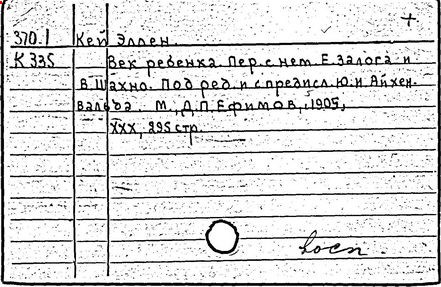 +
370.1 Кей Эллен.
К 335 Век ребенка. Пер. с нем. Е. Залога и
В. Шахно. Под ред. и с предисл. Ю. И. Айхен-
вальда. М., Д. П. Ефимов, 1905,
XXX, 295 стр.